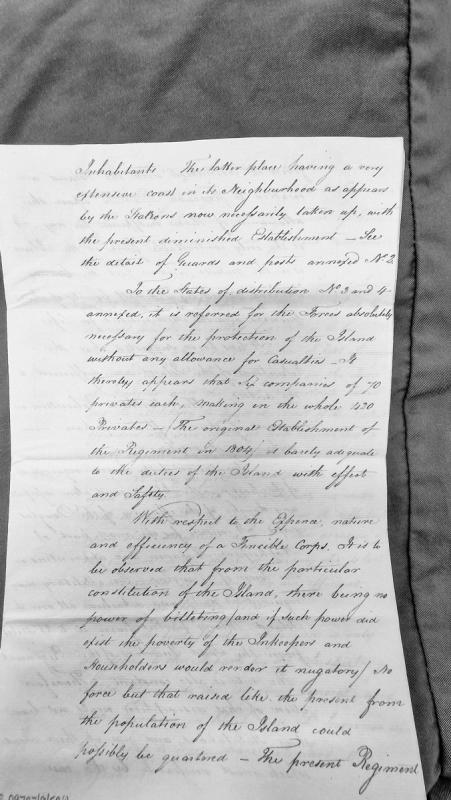 Inhabitants The latter place having a very
extensive coast in its Neighbourhood as appears
by the Stations now necessarily taken up, with
the present diminished Establishment – See
the detail of Guards and posts annexed No 2
To the States of distribution No 3 and 4
annexed, it is referred for the Forces absolutely
necessary for the protection of the Island
without any allowance for Casualties – It
thereby appears that Six companies of 70
privates each, making in the whole 420
Privates – (The original Establishment of
the Regiment in 1804) is barely adequate
to the duties of the Island with effect
and Safety.
With respect to the Expence, nature
and efficiency of a Fencible Corps. It is to
be observed that from the particular
constitution of the Island, there being no
power of billeting (and if such power did
exist the poverty of the Inkeepers and
Householders would render it nugatory) No
force but that raised like the present from
the population of the Island could
possibly be quartered – The present Regiment